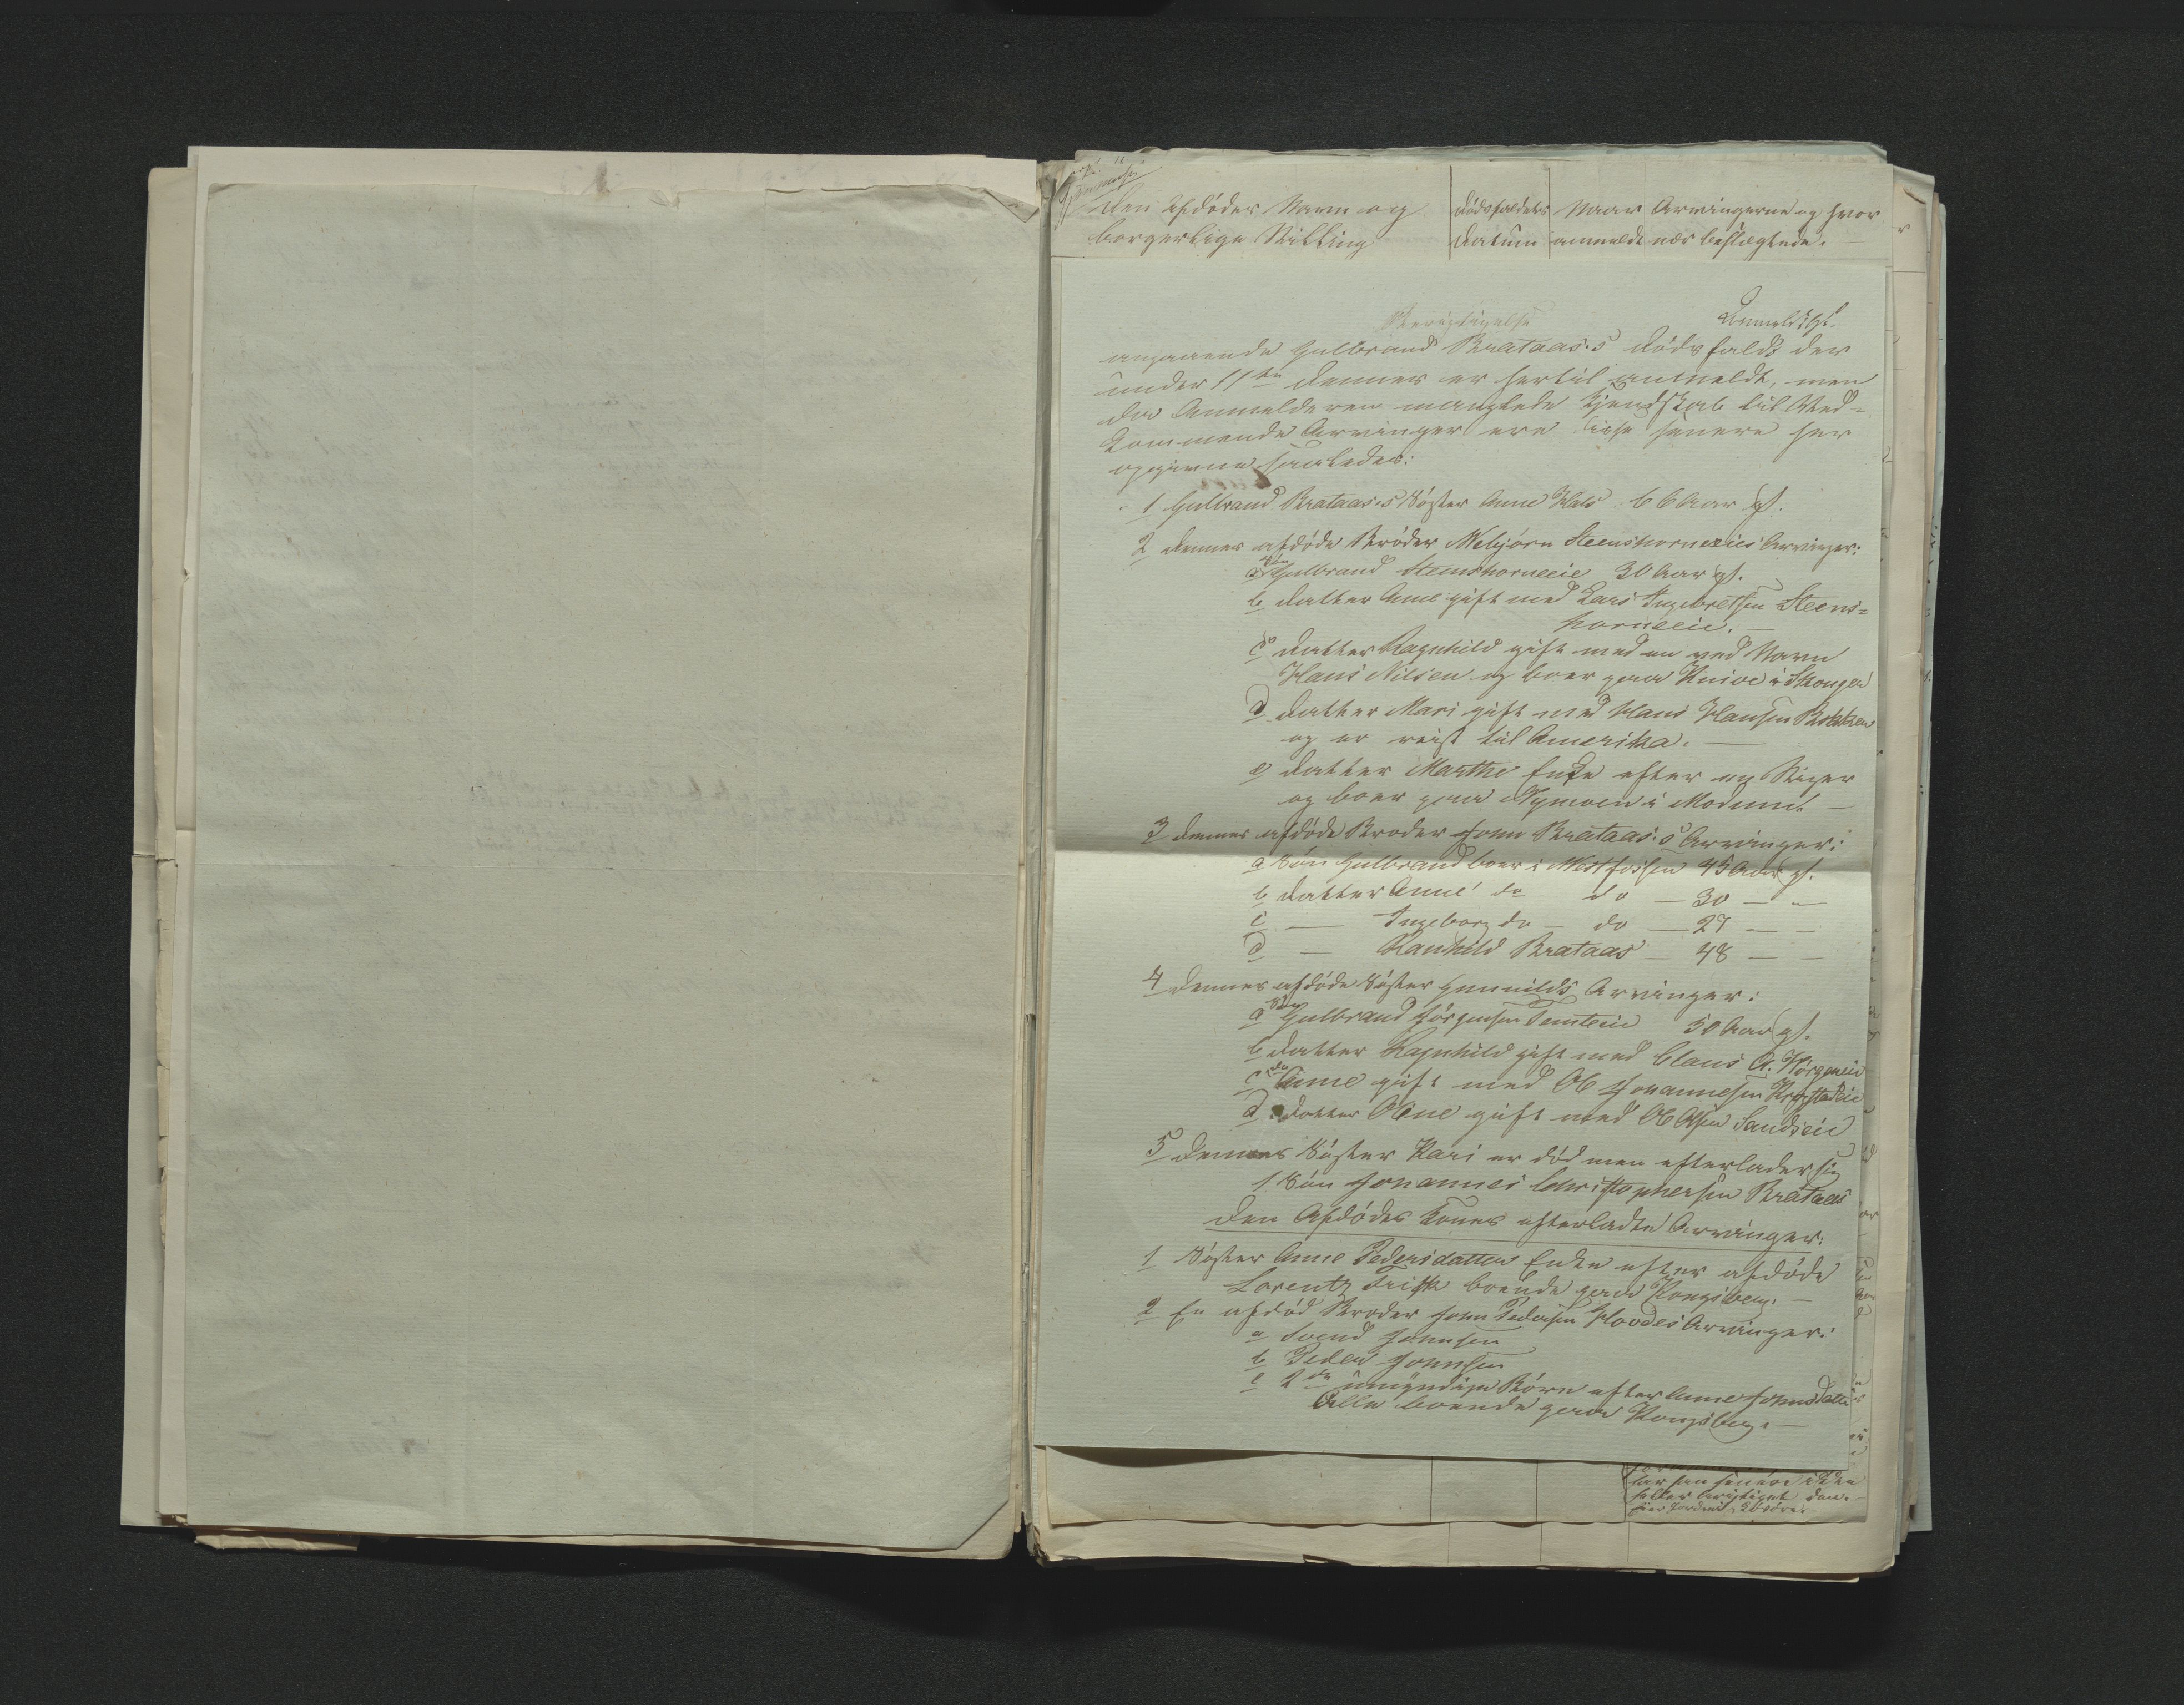 Den Afdødes Navn og
borgerlige Stilling
Dødsfaldets
Datum
Naar
anmeldt
Arvingerne og hvor
nær beslægtede.
Berigtigelse
angaaende Gulbrand Brataas's Dødsfald, der
under 11te dennes er hertil anmeldt, men
da Anmelderen manglede Kjendskab til Ved-
kommende Arvinger ere disse senere her
opgivne saaledes:
1 Gulbrand Brataas's Søster Anne Hals 66 Aar gl.
2 Dennes afdøde Broder Melgjorn Steenshorneeies Arvinger:
a Søn Gulbrand Steenshorneeie 30 Aar gl.
b Datter Anne gift med Lars Ingebretsen Steens-
horneeie.
c Datter Ragnhild gift med en ved Navn
Hans Nilsen og boer paa Knive i Skouger
d Datter Mari gift med Hans Hansen
og er reist til Amerika.
e Datter Marthe Enke efter en Stiger
og boer paa Nymoen i Modum
3 Dennes afdøde Broder John Brataas's Arvinger:
a Søn Gulbrand boer i Westfossen 45 Aar gl.
b Datter Anne do do 30 — —
c — Ingeborg do — do — 27 — —
d — Ranhild Brataas — 48 — —
4 Dennes afdøde Søster Gunnilds Arvinger:
a Søn Gulbrand Jørgensen Temteeie 50 Aar gl.
b Datter Ragnhild gift med Claus A. Horgeneie
c do Anne gift med Ol Johannesen Krogstadeie
d Datter Oline gift med Ol Olsen Sandseie
5 Dennes Søster Kari er død men efterlader sig
1 Søn Johannes Christophersen Brataas
Den Afdødes Kones efterladte Arvinger:
1 Søster Anne Pedersdatter Enke efter afdøde
Lorentz Friis boende paa Kongsberg.
2 En afdød Broder John Pedersen Hovdes Arvinger:
a Svend Johnsen
b Peder Johnsen
c 2de umyndige Børn efter Anne Johnsdatter
Alle boende paa Kongsberg.